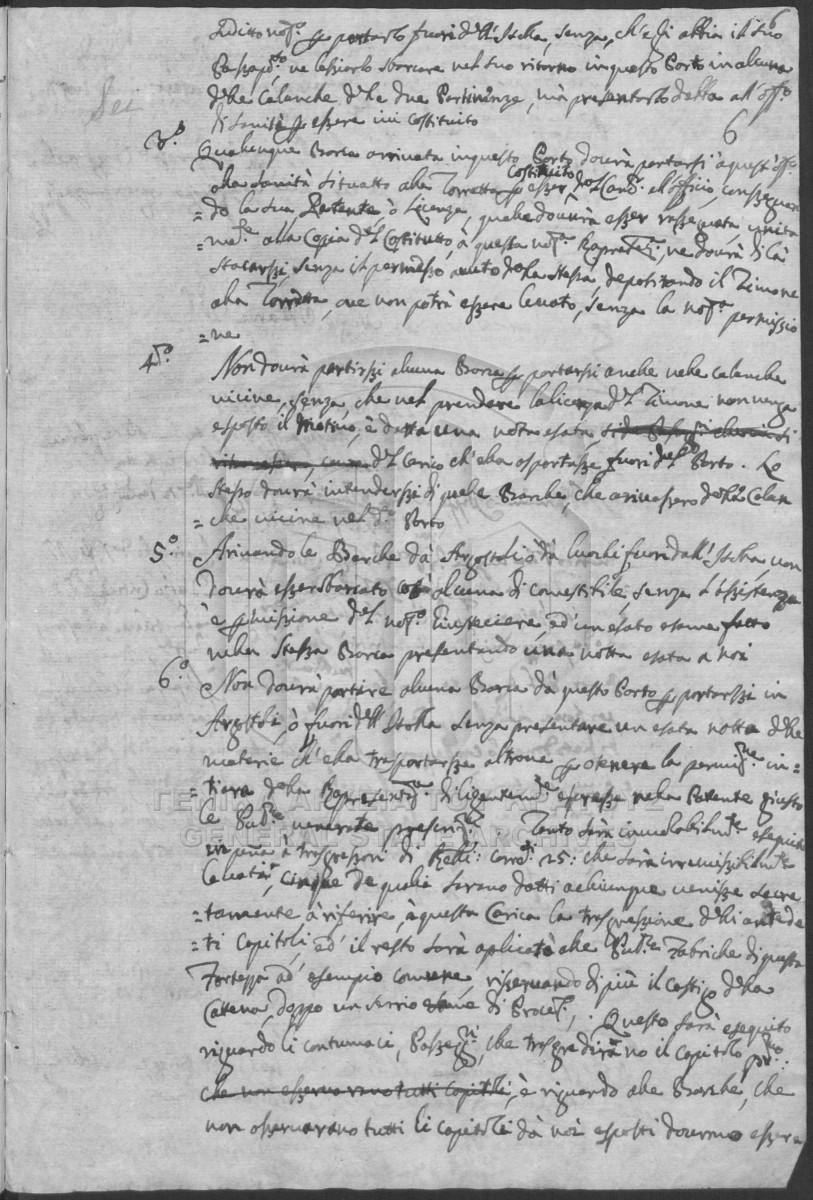 6
suditto nos.º p portarlo fuori dell'Isola, senza, ch'egli abbia il suo
Passap.to, ne lassiarlo sborcare nel suo ritorno in questo Porto in alcuna
delle Calanche delle due Pertinenze, mà presentarlo alla all'off.º
di Sanità p essere ivi Costituito
6
3.º Qualunque Barca arrivata in questo Porto dovrà portarsi à quest'off.º
alla Sanità situatto alla Torretta p esser Costituito dal Canc. el offitio, consegnan
=do la sua Patente, ò Licenza, quale dovrà esser rassegnata, unita
=m.te alla Copia del Costitutto, à questa nos.ª Rapresez., ne dovrà di là
stacarssi, senza il permesso avuto della stessa, depositando il Timone
alla Torretta, ove non potrà essere levato, senza la nos.ª permissio
=ne
4.º Non dovrà partirssi alcuna Barca p portarsi anche nelle calanche
vicine, senza, che nel prendere la licenza del Timone non venga
esposto il Motivo, è datta una nota esata,
del Carico ch'ella asportasse fuori del Porto. Lo
stesso dovrà intenderssi di quelle Barche, che arivassero dalle Calan
=che vicine nel d.º Porto
5.º Arivando le Barche dà Argostoli ò dà luochi fuori dall'Isola, non
dovrà esser sborcato cosa alcuna di comestibile, senza l'assistenza
è p missione del nos.º Giusteciere, ed' un esato esame fatto
nella stessa Barca presentando una notta esata a noi
6.º Non dovrà partire alcuna Barca dà questo Porto p portarssi in
Argostoli, ò fuori dell'Isola senza presentare un esata notta delle
materie ch'ella trasportasse altrove p otenere la permis.ne in=
=tiera della Rapresent.za diligentem.te espresse nella Patente giusto
le Pub.e venerate prescriz.i. Tanto sarà inviolabilm.te esequito
in pena à trasgressori di Realli: corr.ti 25: che sarà irremissibilm.te
levata, cinque de quali sarano datti a chiunque venisse secre
=tamente à riferire, à questa Carica la trasgressione delli antede
=ti Capitoli, ed' il resto sarà aplicato alle Pub.e Fabriche di questa
Fortezza ad' esempio comune, riservando di più il Castigo della
Cattena, doppo un serrio esame di Proces.. Questo sarà esequito
riguardo li contumaci, Passeg.ri, che trasgredirano il Capitolo pmo:
che non osservarano tutti Capitoli, è riguardo alle Barche, che
non osservarano tutti li Capitoli dà noi esposti dovranno essere
ΓΕΝΙΚΑ ΑΡΧΕΙΑ ΤΟΥ ΚΡΑΤΟΥΣ
GENERAL STATE ARCHIVES